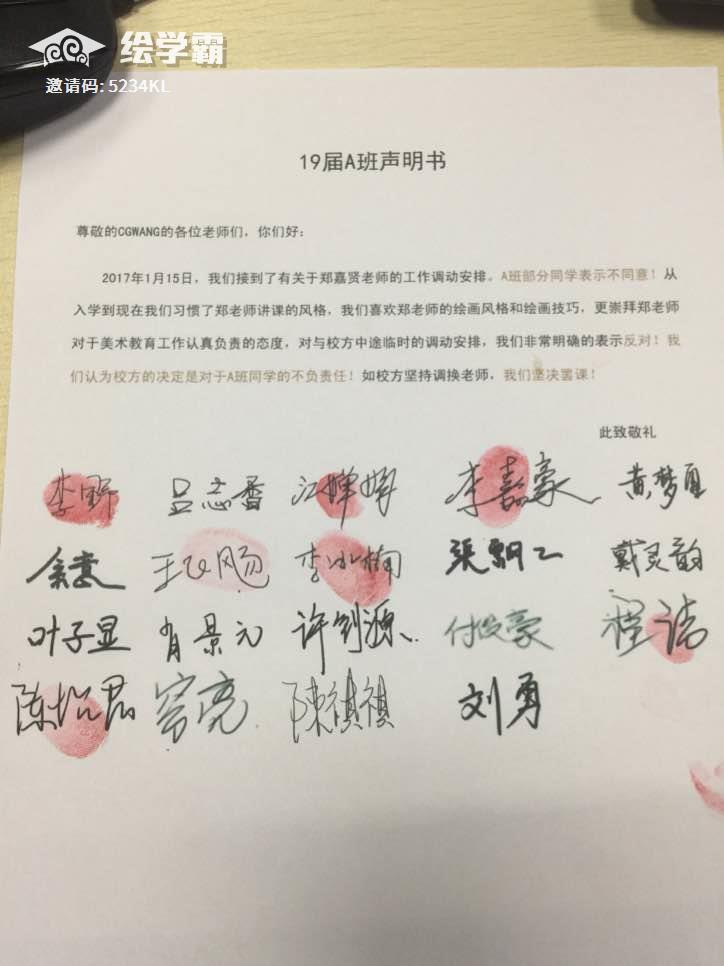 绘学霸
邀请码: 5234KL
19届A班声明书
尊敬的CGWANG的各位老师们，你们好：
2017年1月15日，我们接到了有关于郑嘉贤老师的工作调动安排。A班部分同学表示不同意！从
入学到现在我们习惯了郑老师讲课的风格，我们喜欢郑老师的绘画风格和绘画技巧，更崇拜郑老师
对于美术教育工作认真负责的态度，对与校方中途临时的调动安排，我们非常明确的表示反对！我
们认为校方的决定是对于A班同学的不负责任！如校方坚持调换老师，我们坚决罢课！
此致敬礼
李野 吕志香 李嘉豪 黄梦夏
李冰楠 戴灵韵
叶子显 肖景元 许剑源 程洁
陈祺祺 刘勇